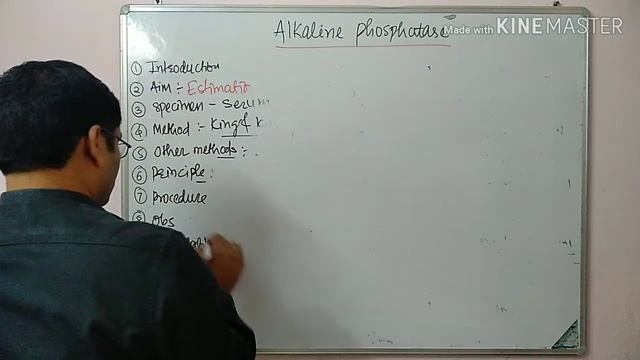 Alkaline phosphatase
Made with KINEMASTER
① Introduction
② Aim :- Estimatio
③ Specimen - Serum
④ Method :- King &
⑤ Other methods :-
⑥ Principle :
⑦ Procedure
⑧ Obs